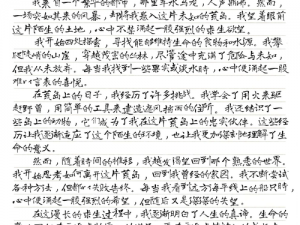 我来自一个繁华的都市，那里车水马龙，人声鼎沸。然而，一
场突如其来的风暴，却将我卷入这片未知的荒岛。我望着眼前
这片陌生的土地，心中不禁涌起一股强烈的求生欲望。
我开始四处探索，寻找能够维持生命的食物和水源。我攀
爬峻峭的山崖，穿越茂密的丛林，尽管途中充满了危险与未知，
但我从未放弃。每当我找到一些野果或淡水时，心中便涌起一股
难以言表的喜悦。
在荒岛的日子，我经历了许多挑战。我学会了用火来驱
赶野兽，用简单的工具来建造遮风挡雨的居所。我还结识了一
些岛上的动物，它们成为了我在这片荒岛上的忠实伙伴。这些经
历让我逐渐适应了这个陌生的环境，也让我更加深刻地理解了生
命的意义。
然而，随着时间的推移，我越发渴望回到那个熟悉的世界。
我开始思考如何离开这片荒岛，回到我曾经的家园。我不断尝试
各种方法，但都以失败告终。每当我看到远方海平线上的船只时，
心中便涌起一股强烈的希望，但随后又是深深的失望。
在这漫长的求生过程中，我逐渐明白了人生的真谛。生命的